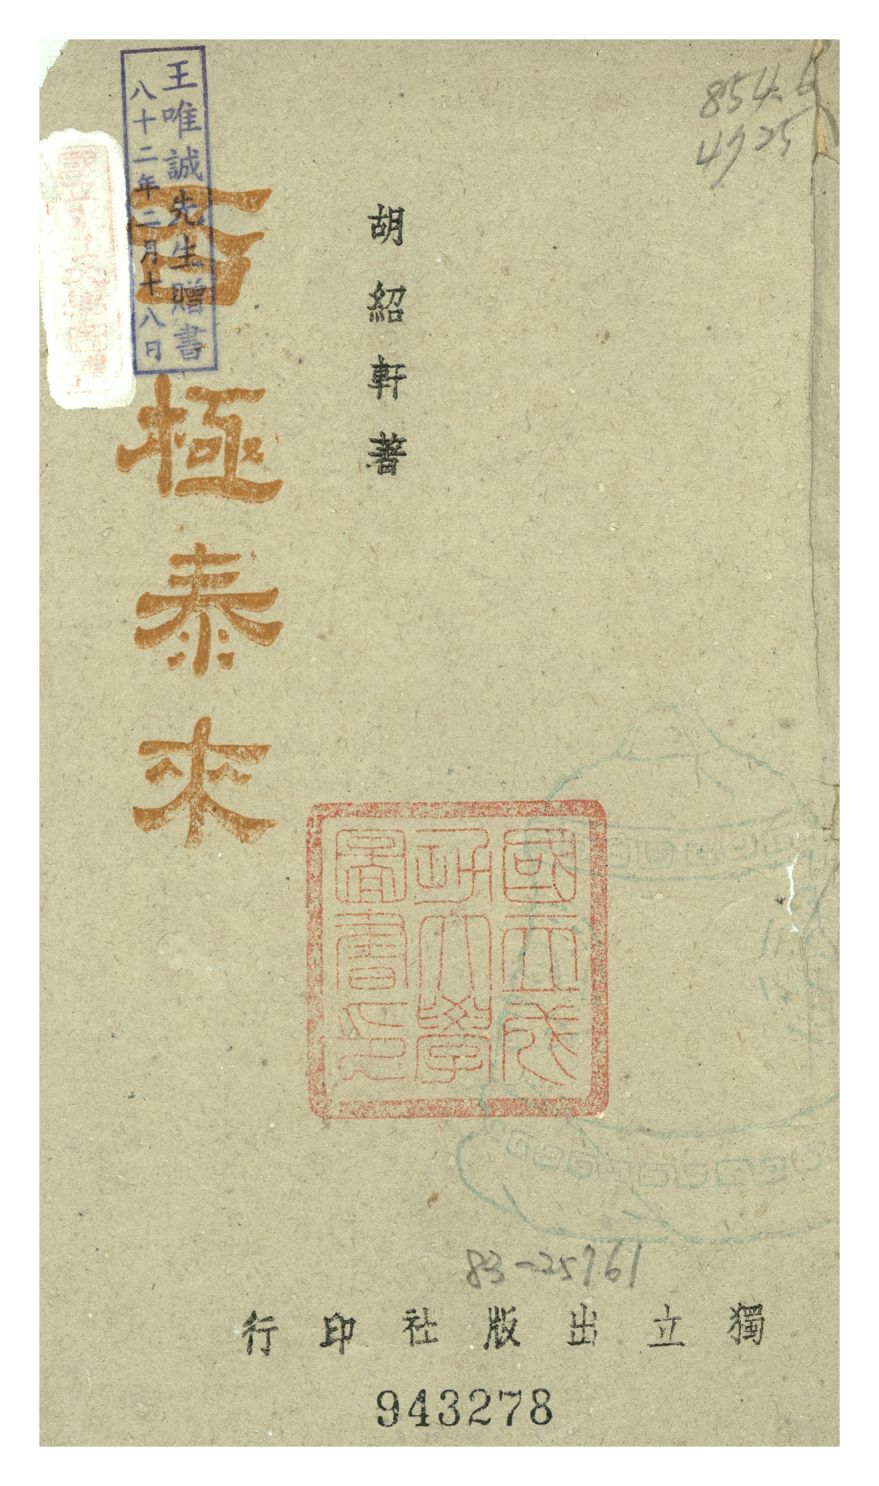 854.6
4925
王唯誠先生贈書
八十二年二月十八日
胡紹軒著
否極泰來
國立成
功大學
圖書印
83-25961
獨立出版社印行
943278